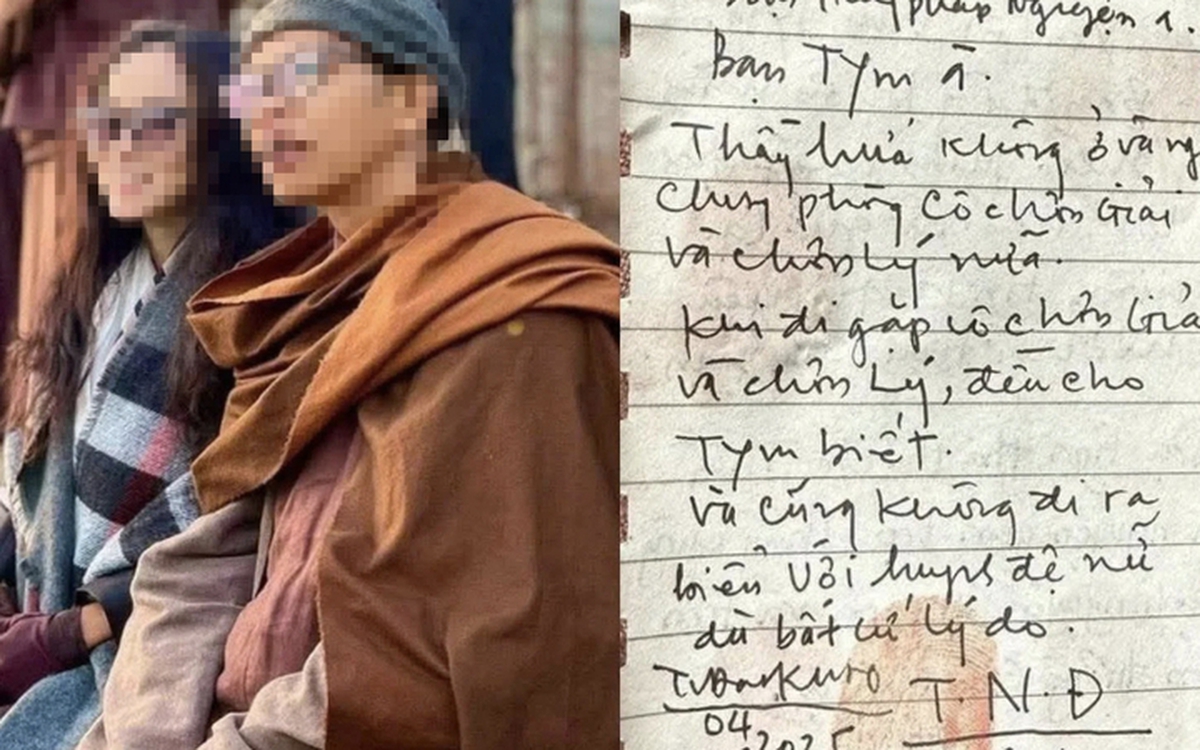 pháp Nguyện 1.
Bạn Tym à.
Thầy hứa không ở và ng
chung phòng cô chơn Giải
và chơn Lý nữa.
Khi đi gặp cô chơn Giả
và chơn Lý, đều cho
Tym biết.
và cũng không đi ra
biển với huynh đệ nữ
dù bất cứ lý do.
T.N.Đ
04
2025